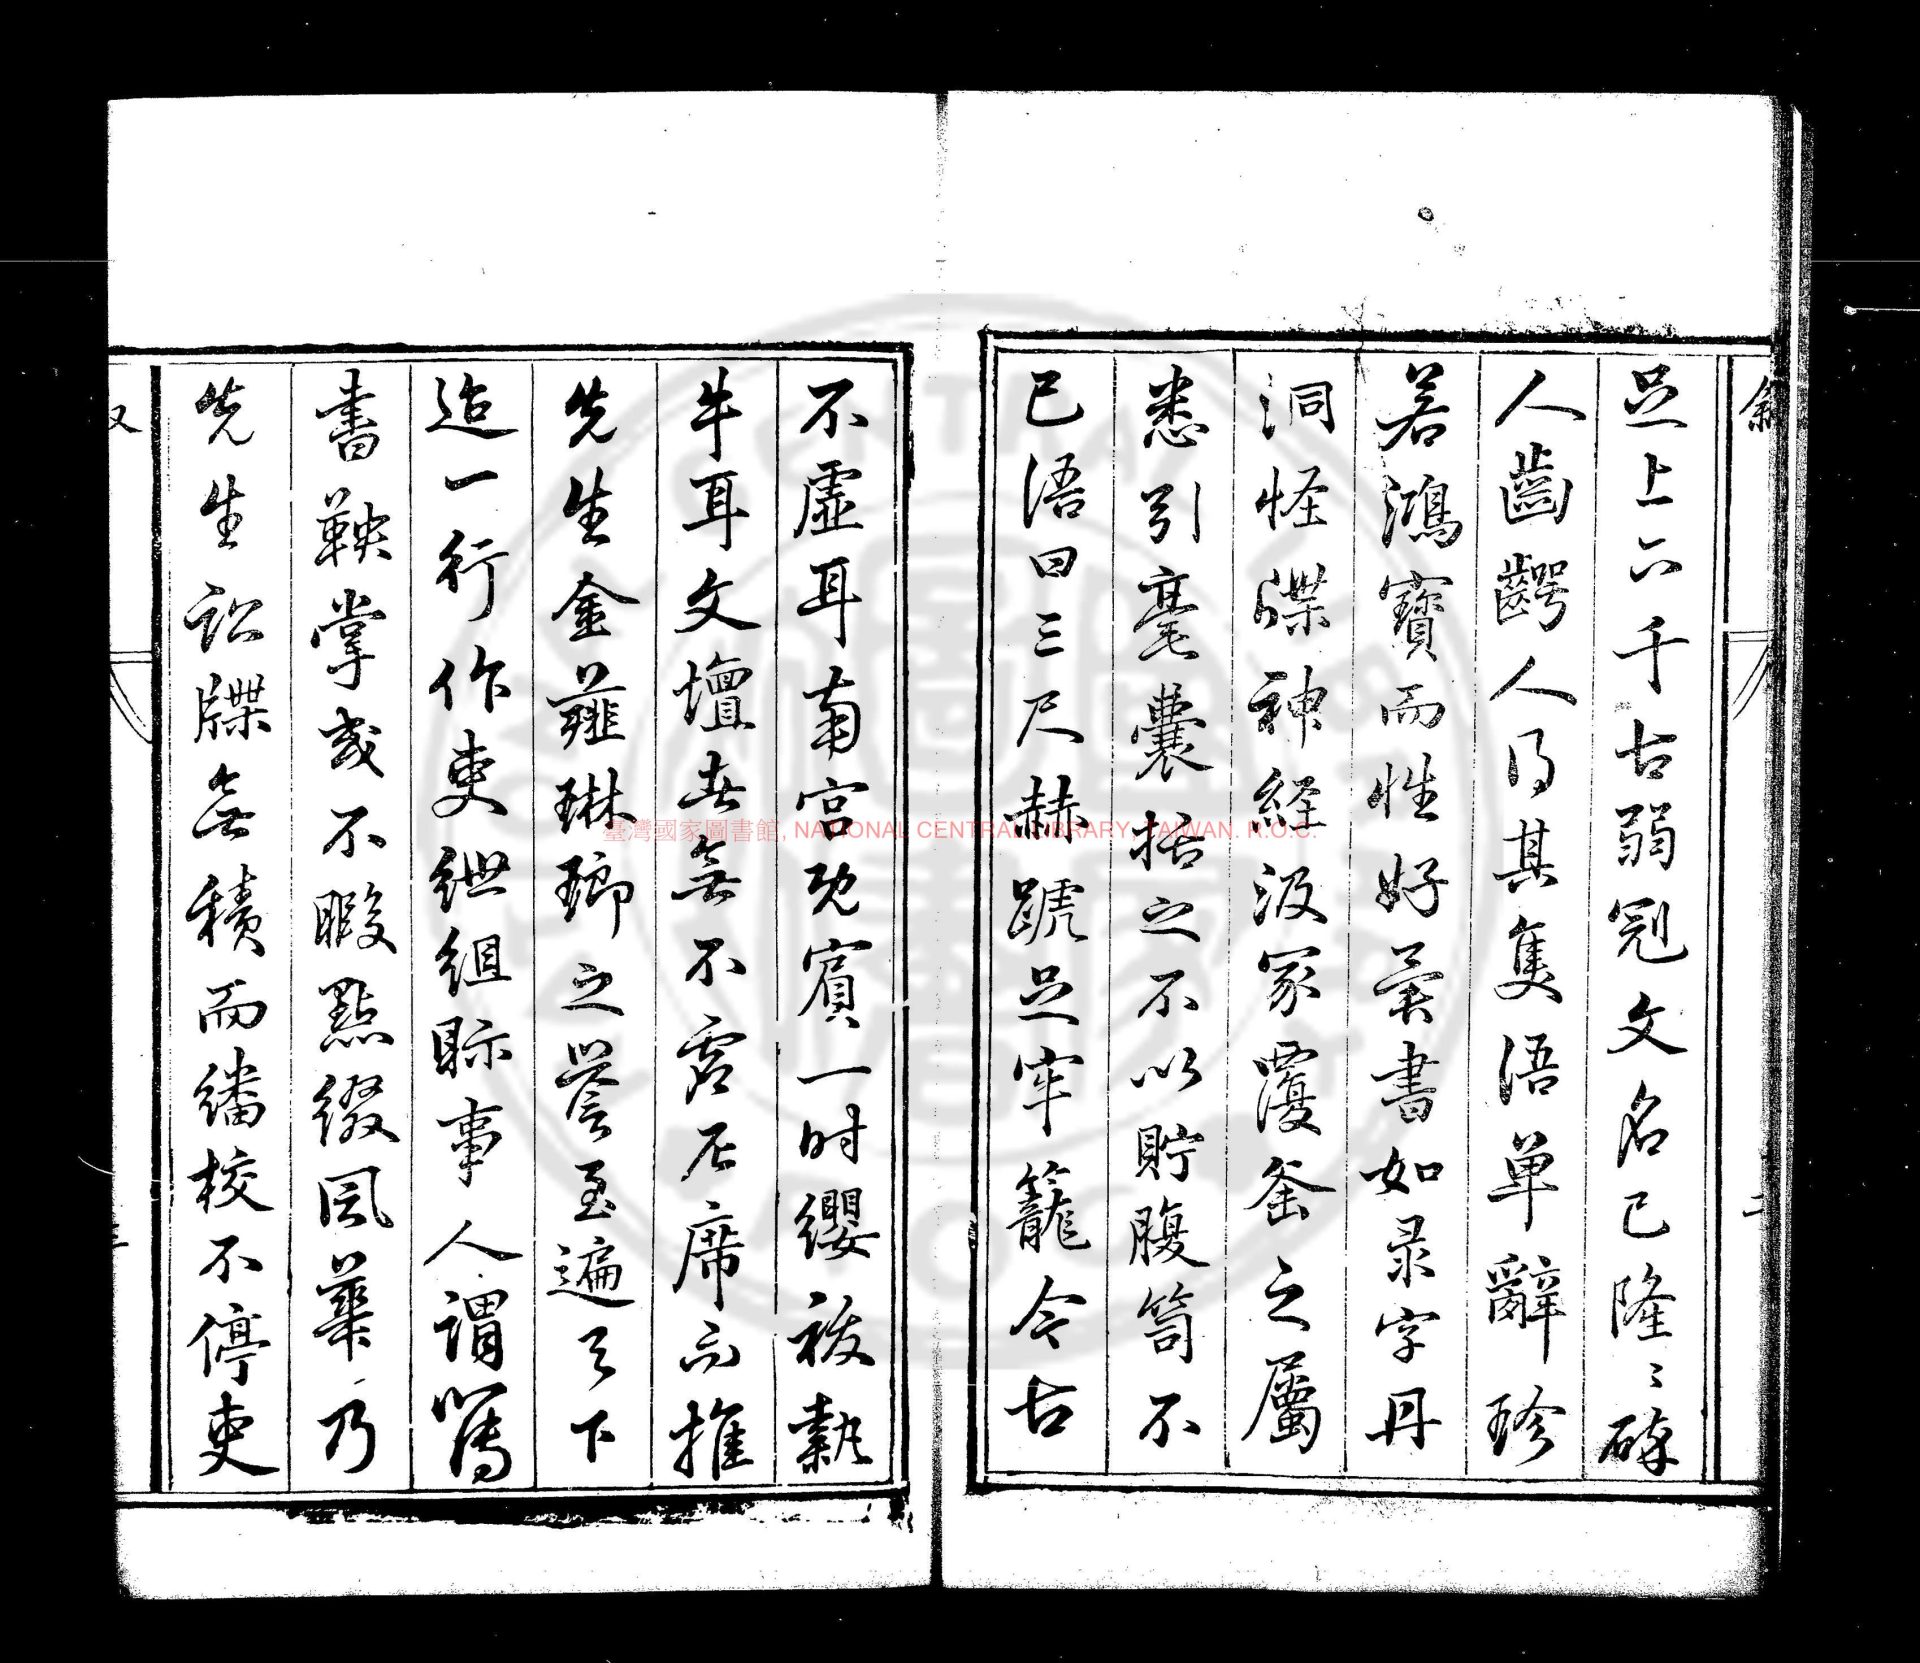 叙
足上下千古弱冠文名已隆隆碎
人齒齶人得其隻語单辭珍
若鴻寶而性好彙書如录字丹
洞怪牒神經汲冢覆釜之屬
悉引毫囊括之不以貯腹笥不
已語曰三尺赫蹏足牢籠今古
不虛耳南宮既賓一时纓祓執
牛耳文壇者無不虛左席而推
先生金薤琳瑯之譽至遍天下
迨一行作吏紲組眎事人謂簿
書鞅掌或不暇點綴风華乃
先生訟牒無積而繙校不停吏
臺灣國家圖書館, NATIONAL CENTRAL LIBRARY, TAIWAN. R.O.C.